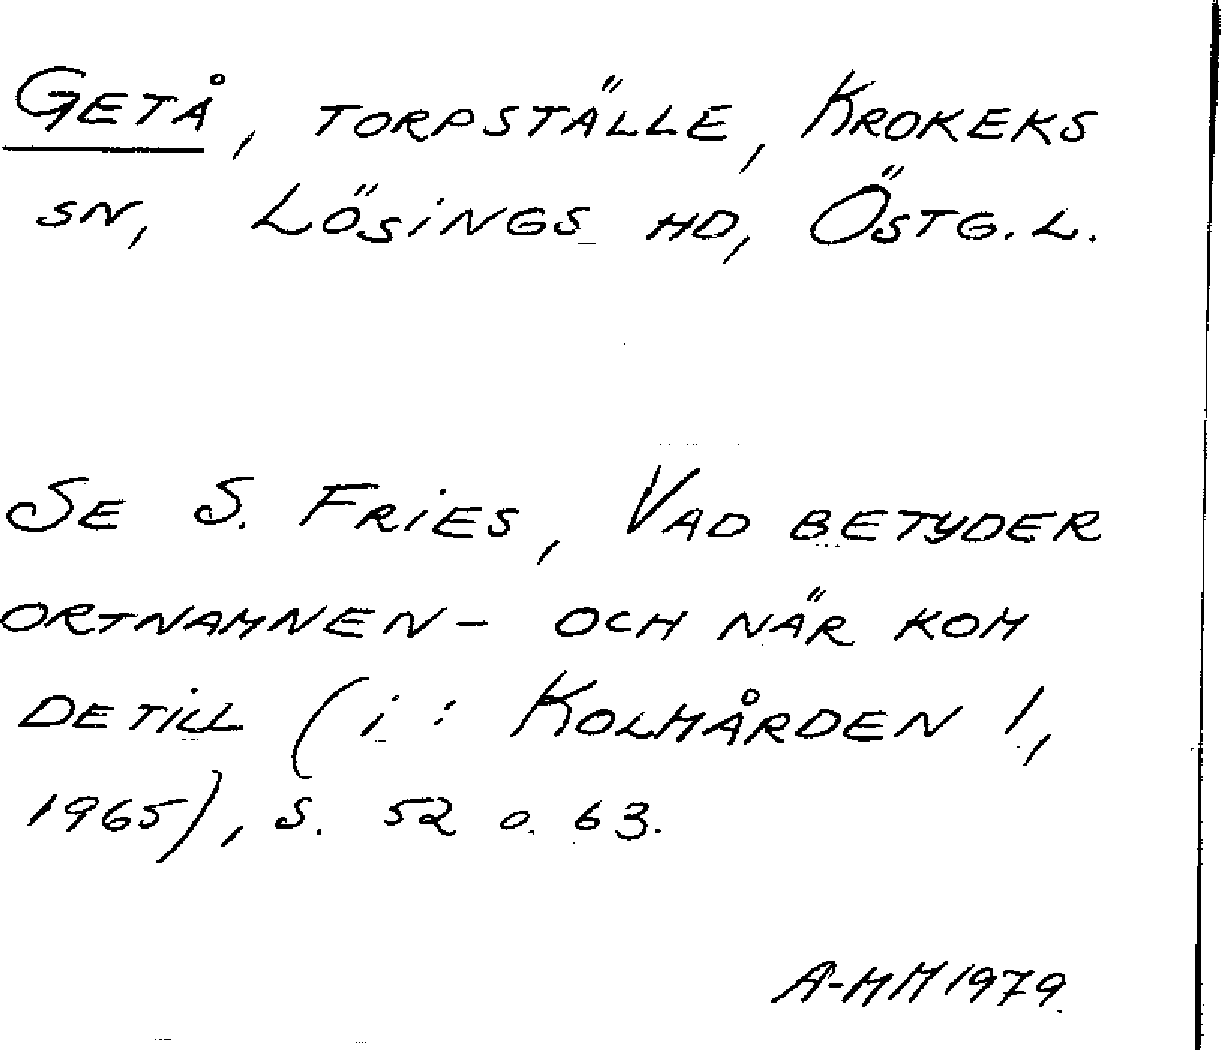 GETÅ, TORPSTÄLLE, KROKEKS
SN, LÖSINGS HD, ÖSTG. L.
SE S. FRIES, VAD BETYDER
ORTNAMNEN - OCH NÄR KOM
DE TILL (i: KOLMÅRDEN 1,
1965), S. 52 o. 63.
A-MM 1979.